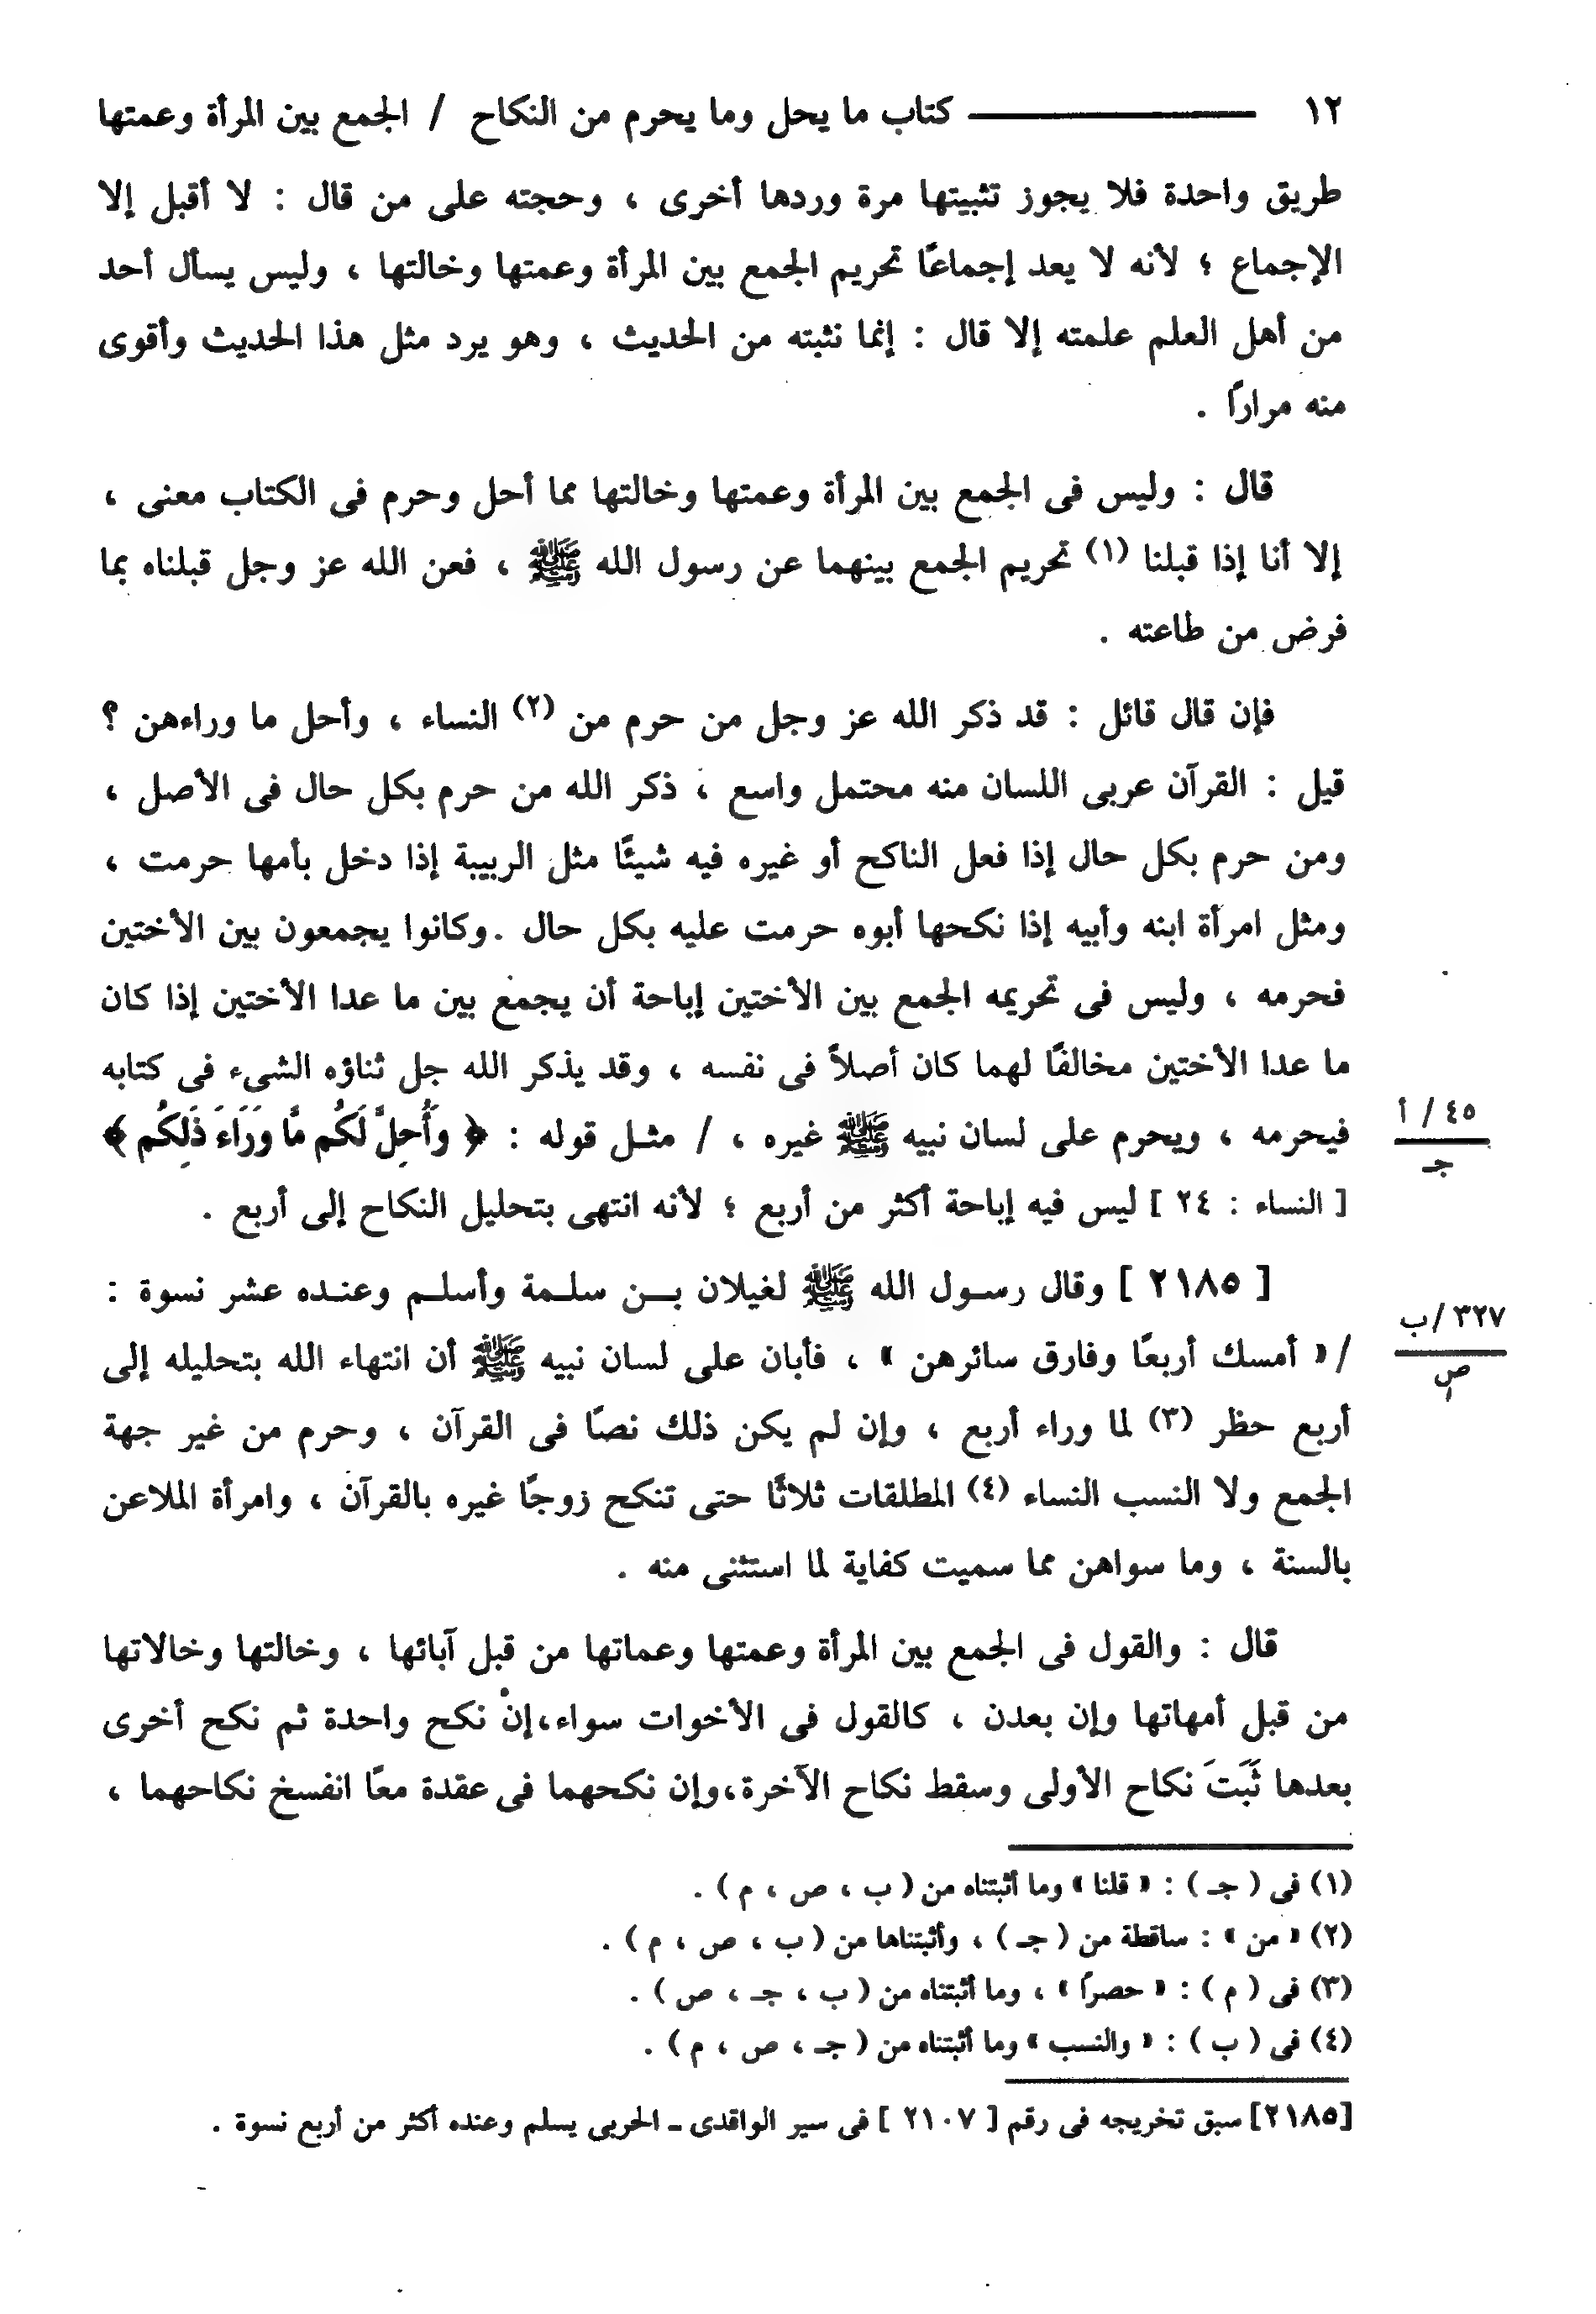 ١٢ ــــــــــــ كتاب ما يحل وما يحرم من النكاح / الجمع بين المرأة وعمتها
طريق واحدة فلا يجوز تثبيتها مرة وردها أخرى ، وحجته على من قال : لا أقبل إلا
الإجماع ؛ لأنه لا يعد إجماعًا تحريم الجمع بين المرأة وعمتها وخالتها ، وليس يسأل أحد
من أهل العلم علمته إلا قال : إنما نثبته من الحديث ، وهو يرد مثل هذا الحديث وأقوى
منه مرارًا .
قال : وليس فى الجمع بين المرأة وعمتها وخالتها مما أحل وحرم فى الكتاب معنى ،
إلا أنا إذا قبلنا (١) تحريم الجمع بينهما عن رسول الله ﷺ ، فعن الله عز وجل قبلناه بما
فرض من طاعته .
فإن قال قائل : قد ذكر الله عز وجل من حرم من (٢) النساء ، وأحل ما وراءهن ؟
قيل : القرآن عربى اللسان منه محتمل واسع ، ذكر الله من حرم بكل حال فى الأصل ،
ومن حرم بكل حال إذا فعل الناكح أو غيره فيه شيئًا مثل الربيبة إذا دخل بأمها حرمت ،
ومثل امرأة ابنه وأبيه إذا نكحها أبوه حرمت عليه بكل حال .وكانوا يجمعون بين الأختين
فحرمه ، وليس فى تحريمه الجمع بين الأختين إباحة أن يجمع بين ما عدا الأختين إذا كان
ما عدا الأختين مخالفًا لهما كان أصلاً فى نفسه ، وقد يذكر الله جل ثناؤه الشىء فى كتابه
فيحرمه ، ويحرم على لسان نبيه ﷺ غيره ، / مثـل قوله : ﴿ وَأُحِلَّ لَكُم مَّا وَرَاءَ ذَلِكُم ﴾
٤٥ / أ
جـ
[ النساء : ٢٤ ] ليس فيه إباحة أكثر من أربع ؛ لأنه انتهى بتحليل النكاح إلى أربع .
[ ٢١٨٥ ] وقال رسـول الله ﷺ لغيلان بـــن سلـمة وأسلـم وعنـده عشر نسوة :
٣٢٧ /ب
ص
/ « أمسك أربعًا وفارق سائرهن » ، فأبان على لسان نبيه ﷺ أن انتهاء الله بتحليله إلى
أربع حظر (٣) لما وراء أربع ، وإن لم يكن ذلك نصًا فى القرآن ، وحرم من غير جهة
الجمع ولا النسب النساء (٤) المطلقات ثلاثًا حتى تنكح زوجًا غيره بالقرآن ، وامرأة الملاعن
بالسنة ، وما سواهن مما سميت كفاية لما استثنى منه .
قال : والقول فى الجمع بين المرأة وعمتها وعماتها من قبل آبائها ، وخالتها وخالاتها
من قبل أمهاتها وإن بعدن ، كالقول فى الأخوات سواء،إنْ نكح واحدة ثم نكح أخرى
بعدها ثَبَتَ نكاح الأولى وسقط نكاح الآخرة،وإن نكحهما فى عقدة معًا انفسخ نكاحهما ،
(١) فى ( جـ ) : « قلنا » وما أثبتناه من ( ب ، ص ، م ) .
(٢) « من » : ساقطة من ( جـ ) ، وأثبتناها من ( ب ، ص ، م ) .
(٣) فى ( م ) : « حصرًا » ، وما أثبتناه من ( ب ، جـ ، ص ) .
(٤) فى ( ب ) : « والنسب » وما أثبتناه من ( جـ ، ص ، م ) .
[٢١٨٥] سبق تخريجه فى رقم [ ٢١٠٧ ] فى سير الواقدى ـ الحربى يسلم وعنده أكثر من أربع نسوة .